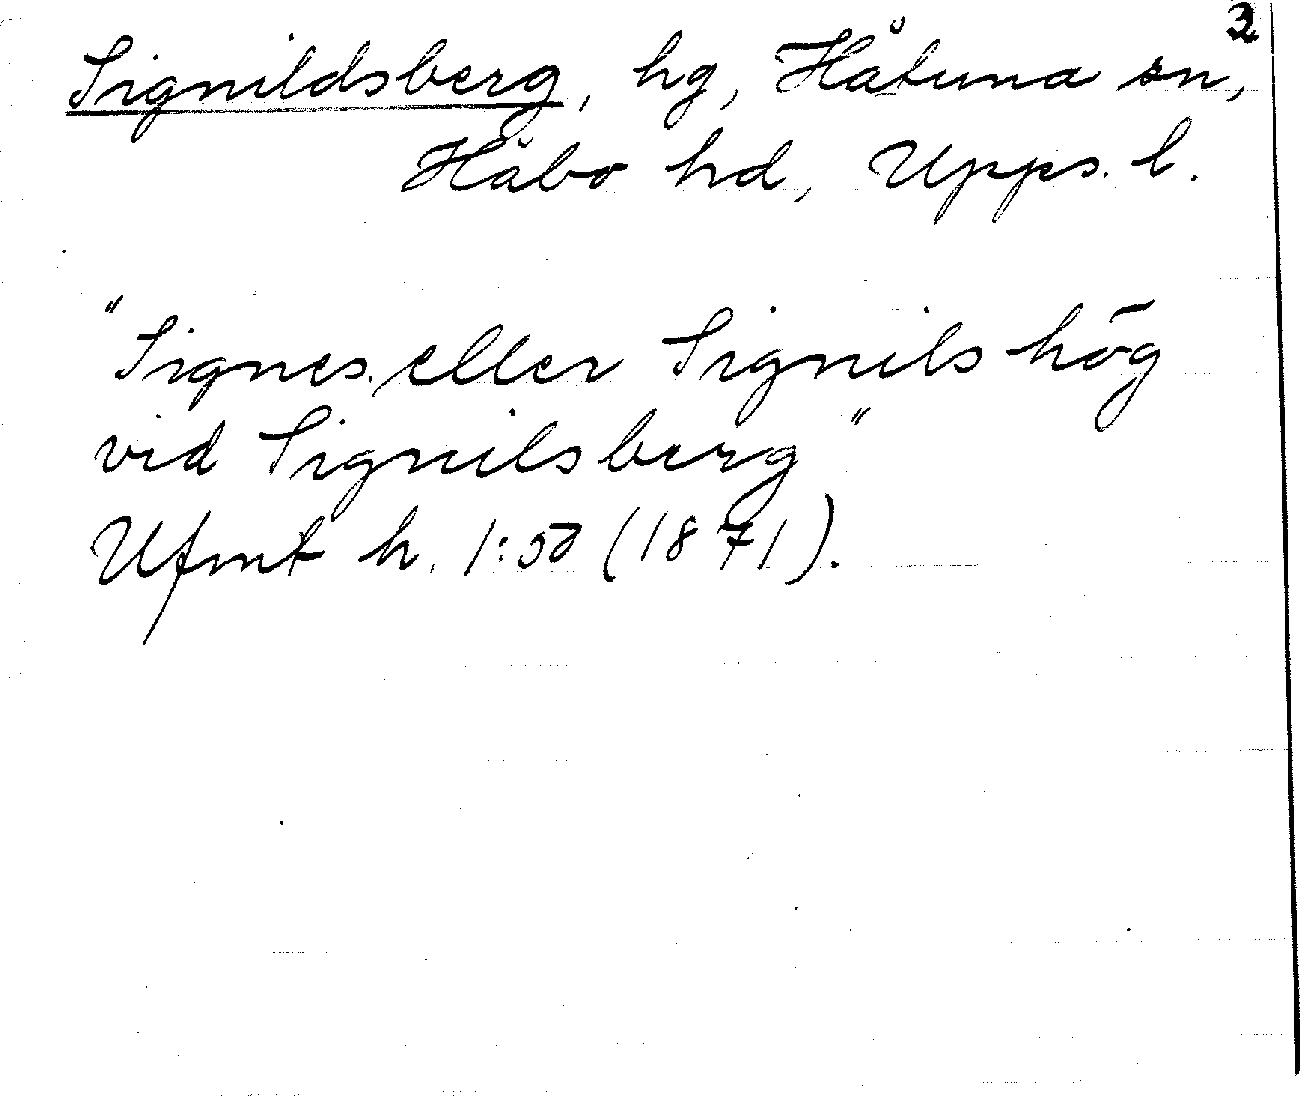 2
Signildsberg, hg, Håtuna sn,
Håbo hd, Upps. l.
"Signes. eller Signils hög
vid Signilsberg"
Ufmt h. 1:50 (1871).